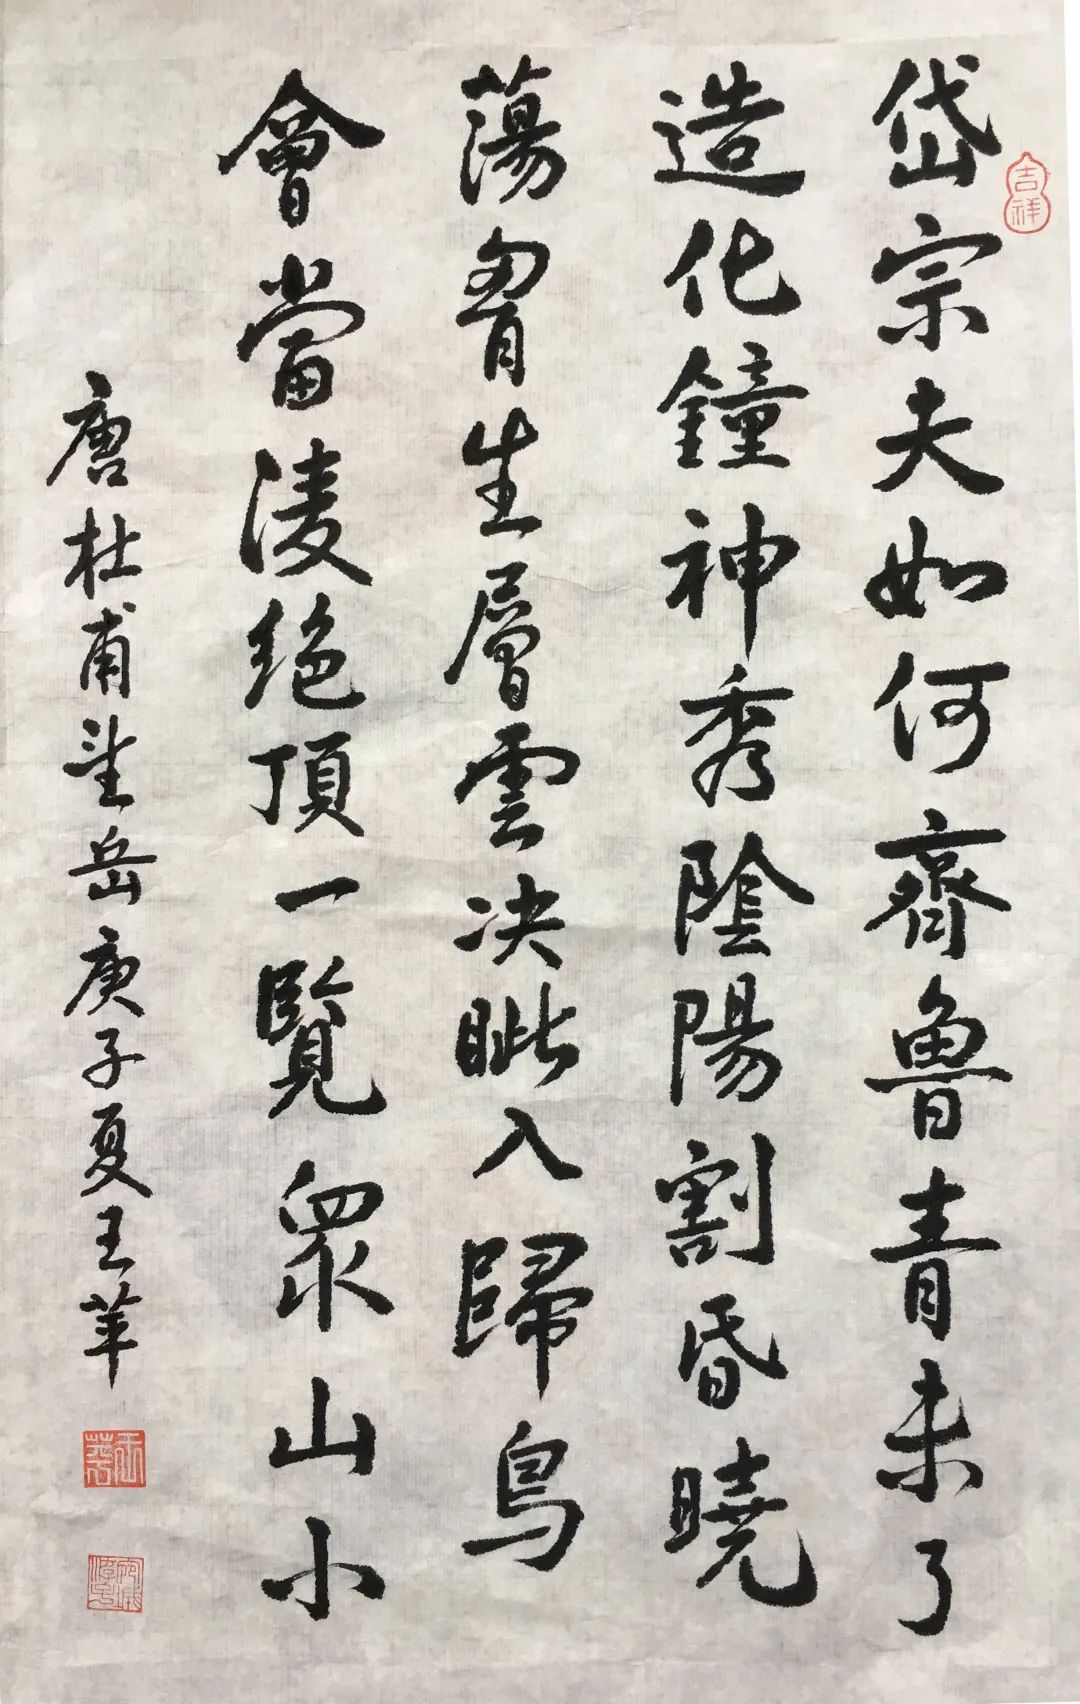 吉祥
岱宗夫如何齊魯青未了
造化鐘神秀陰陽割昏曉
蕩胷生層雲决眦入歸鳥
會當淩絶頂一覽眾山小
唐杜甫望岳庚子夏王